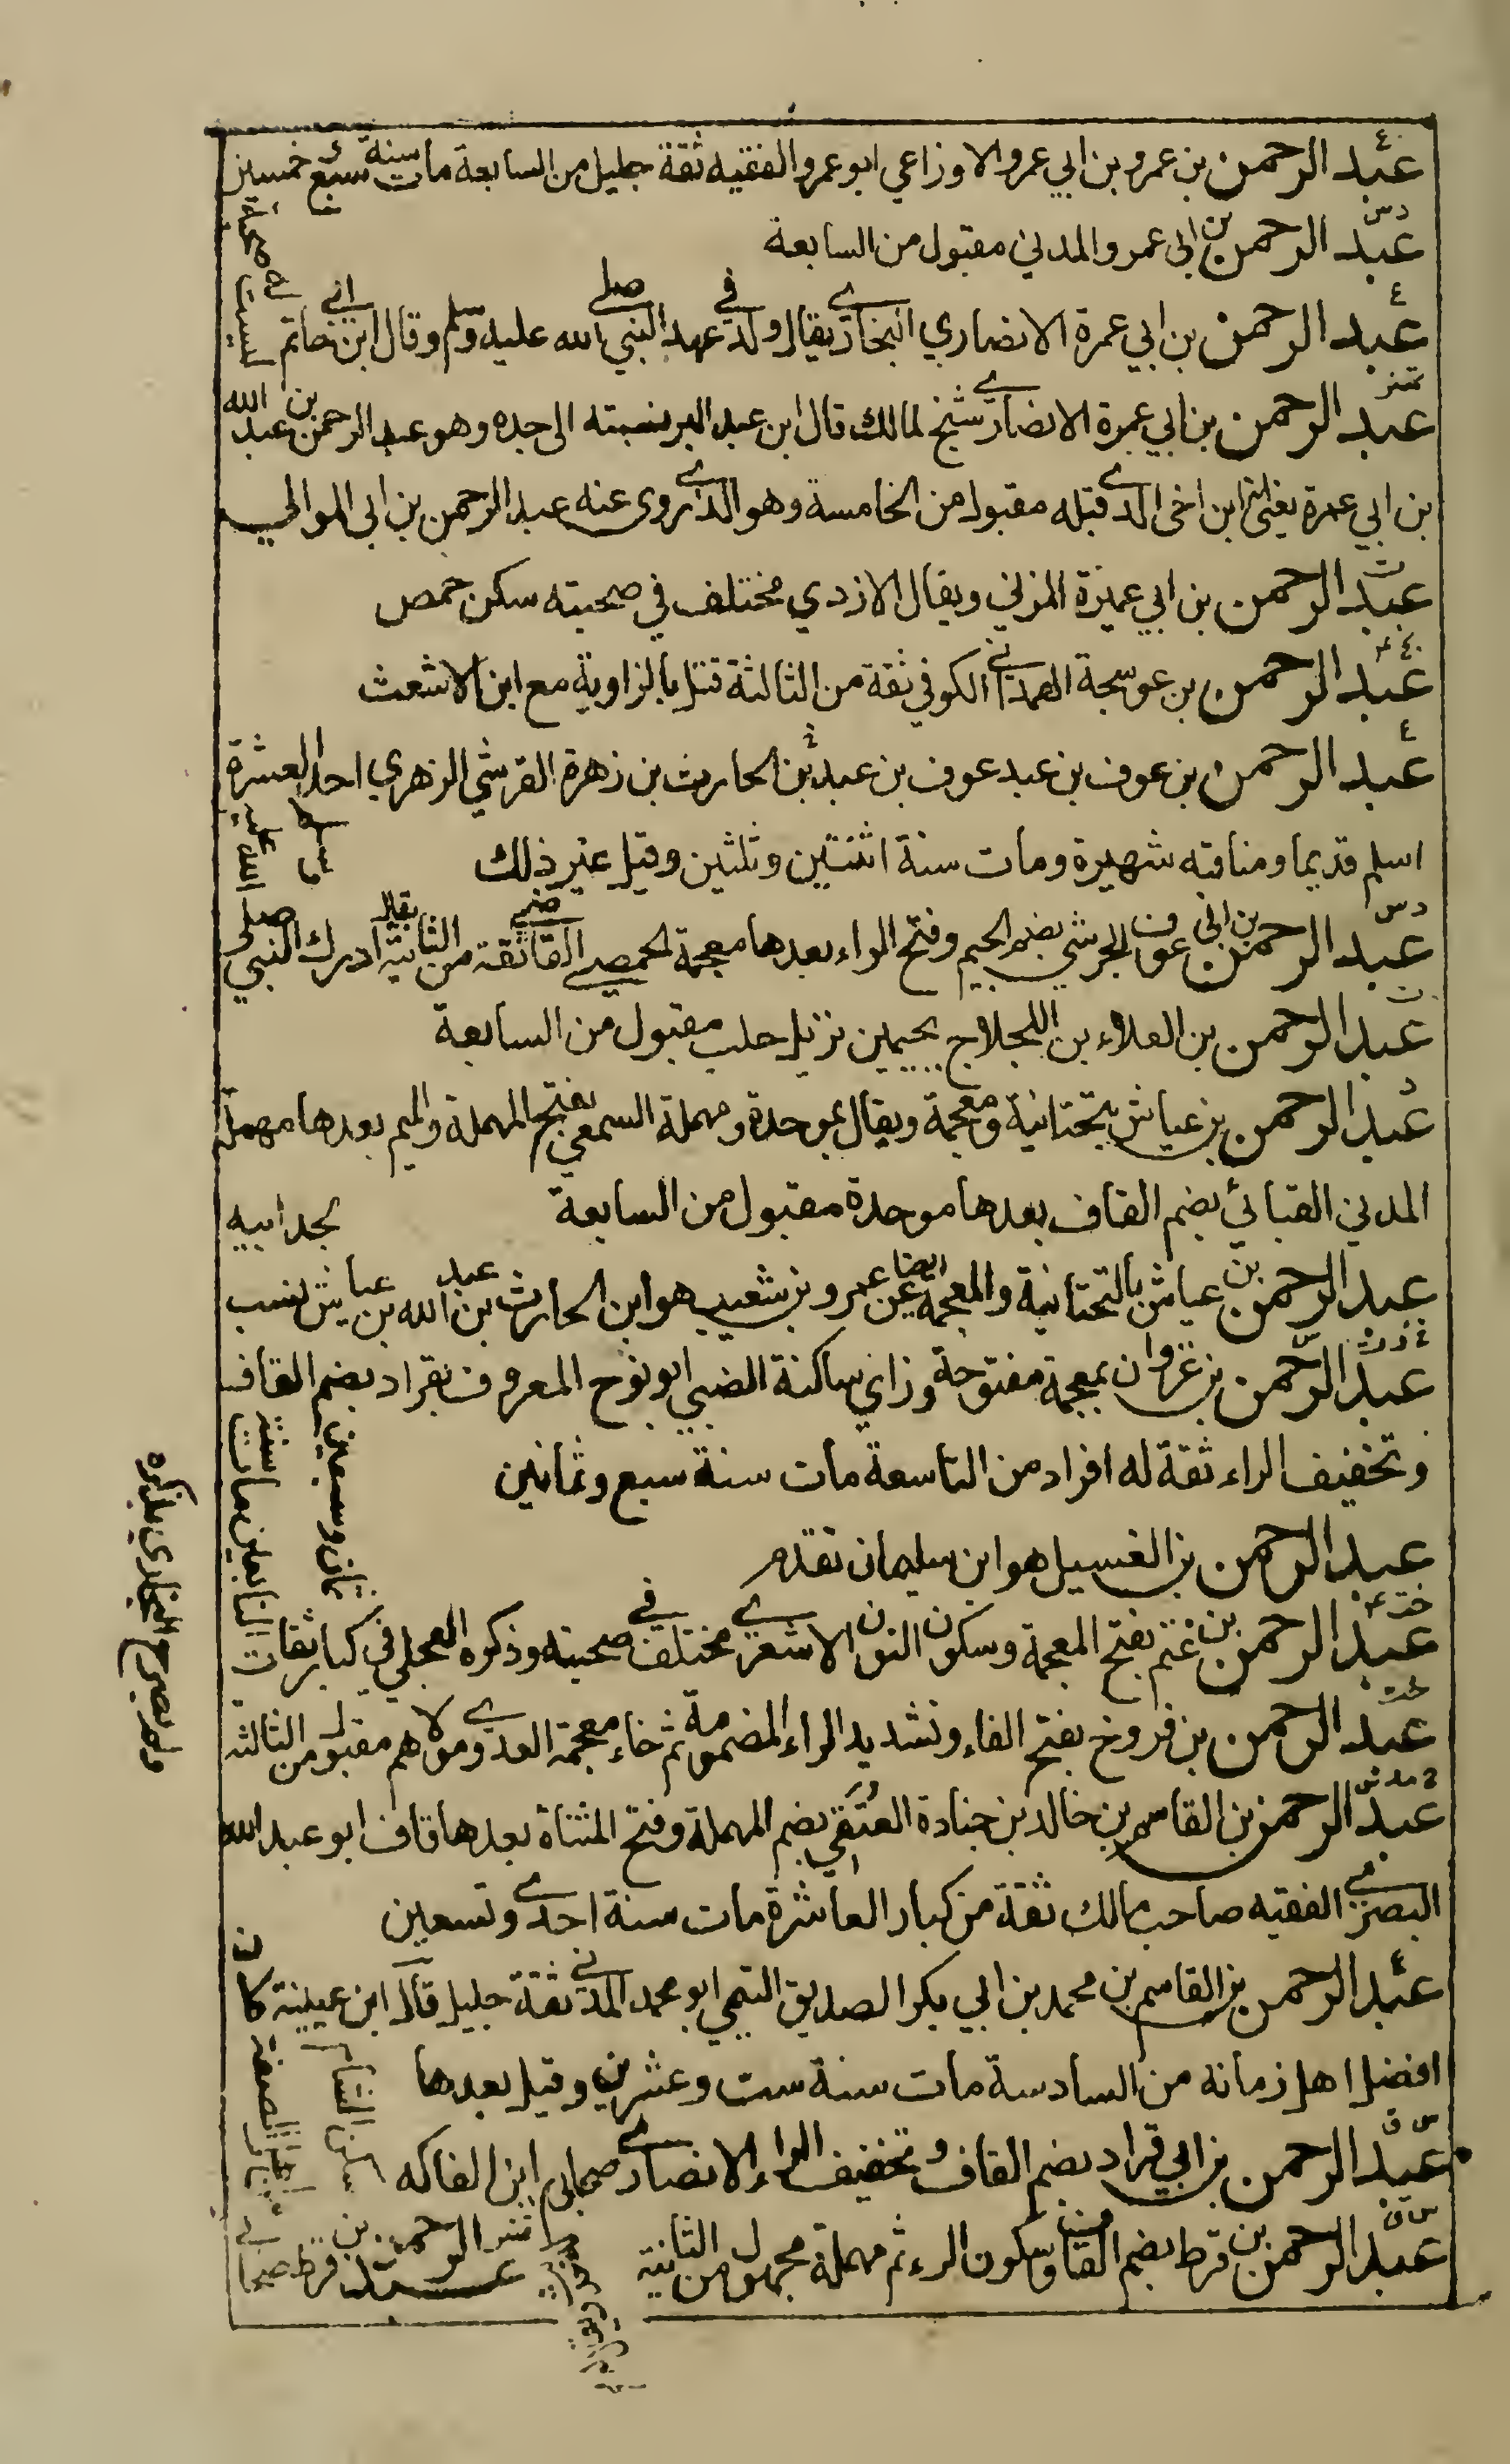 ع
عبد الرحمن بن عمرو بن ابي عمرو الاوزاعي ابو عمرو الفقيه ثقة جليل من السابعة مات سنة سبع خمسين
د س
عبد الرحمن بن ابى عمرو المدني مقبول من السابعة
ع
عبد الرحمن بن ابي عمرة الانصاري النجاري يقال ولد في عهد النبي صلى الله عليه وسلم وقال ابن ابي حاتم
ليست له صحبة
عبد الرحمن بن ابي عمرة الانصاري شيخ لمالك قال ابن عبد البر نسبته الى جده وهو عبد الرحمن بن عبد الله
بن ابي عمرة يعني ابن اخى الذي قبله مقبول من الخامسة وهو الذي روى عنه عبد الرحمن بن ابى الموالي
ت
عبد الرحمن بن ابي عميرة المزني ويقال الازدي مختلف في صحبته سكن حمص
عبد الرحمن بن عوسجة الهمداني الكوفي ثقة من الثالثة قتل بالزاوية مع ابن الاشعث
ع
عبد الرحمن بن عوف بن عبد عوف بن عبد بن الحارث بن زهرة القرشي الزهري احد العشرة
اسلم قديما ومناقبه شهيرة ومات سنة اثنتين وثلثين وقيل غير ذلك
د س
عبد الرحمن بن ابي عوف الجرشي بضم الجيم وفتح الراء بعدها معجمة الحمصي القاضي ثقة من الثانية يقال ادرك النبي صلى
الله عليه وسلم
ت
عبد الرحمن بن العلاء بن اللجلاج بجيمين نزيل حلب مقبول من السابعة
د
عبد الرحمن بن عياش بتحتانية ومعجمة ويقال بموحدة ومهملة السمعي بفتح المهملة والميم بعدها مهملة
المدني القبائي بضم القاف بعدها موحدة مقبول من السابعة
عبد الرحمن بن عياش بالتحتانية والمعجمة ايضا عن عمرو بن شعيب هو ابن الحارث بن عبد الله بن عياش نسب
لجد ابيه
عبد الرحمن بن غزوان بمعجمة مفتوحة وزاي ساكنة الضبي ابو نوح المعروف بقراد بضم القاف
وتخفيف الراء ثقة له افراد من التاسعة مات سنة سبع وثمانين
عبد الرحمن بن الغسيل هو ابن سليمان تقدم
عبد الرحمن بن غنم بفتح المعجمة وسكون النون الاشعري مختلف في صحبته وذكره العجلي في كبار ثقات
التابعين مات سنة
ثمان وسبعين
عبد الرحمن بن فروخ بفتح الفاء وتشديد الراء المضمومة ثم خاء معجمة العدوي مولاهم مقبول من الثالثة
ولم يصرح البخاري بذكره
عبد الرحمن بن القاسم بن خالد بن جنادة العتقي بضم المهملة وفتح المثناة بعدها قاف ابو عبد الله
البصري الفقيه صاحب مالك ثقة من كبار العاشرة مات سنة احدى وتسعين
ع
عبد الرحمن بن القاسم بن محمد بن ابي بكر الصديق التيمي ابو محمد المدني ثقة جليل قال ابن عيينة كان
افضل اهل زمانه من السادسة مات سنة ست وعشرين وقيل بعدها
س ق
عبد الرحمن بن ابي قراد بضم القاف وتخفيف الراء الانصاري صحابي ابن الفاكه
س ق
عبد الرحمن بن قرط بضم القاف وسكون الراء ثم مهملة مجهول من الثانية
عبد الرحمن بن قرط صحابي
من اهل الصفة
سكن الشام